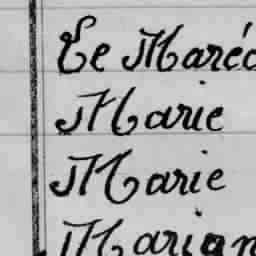 Le Maréc
Marie
Marie
Marian